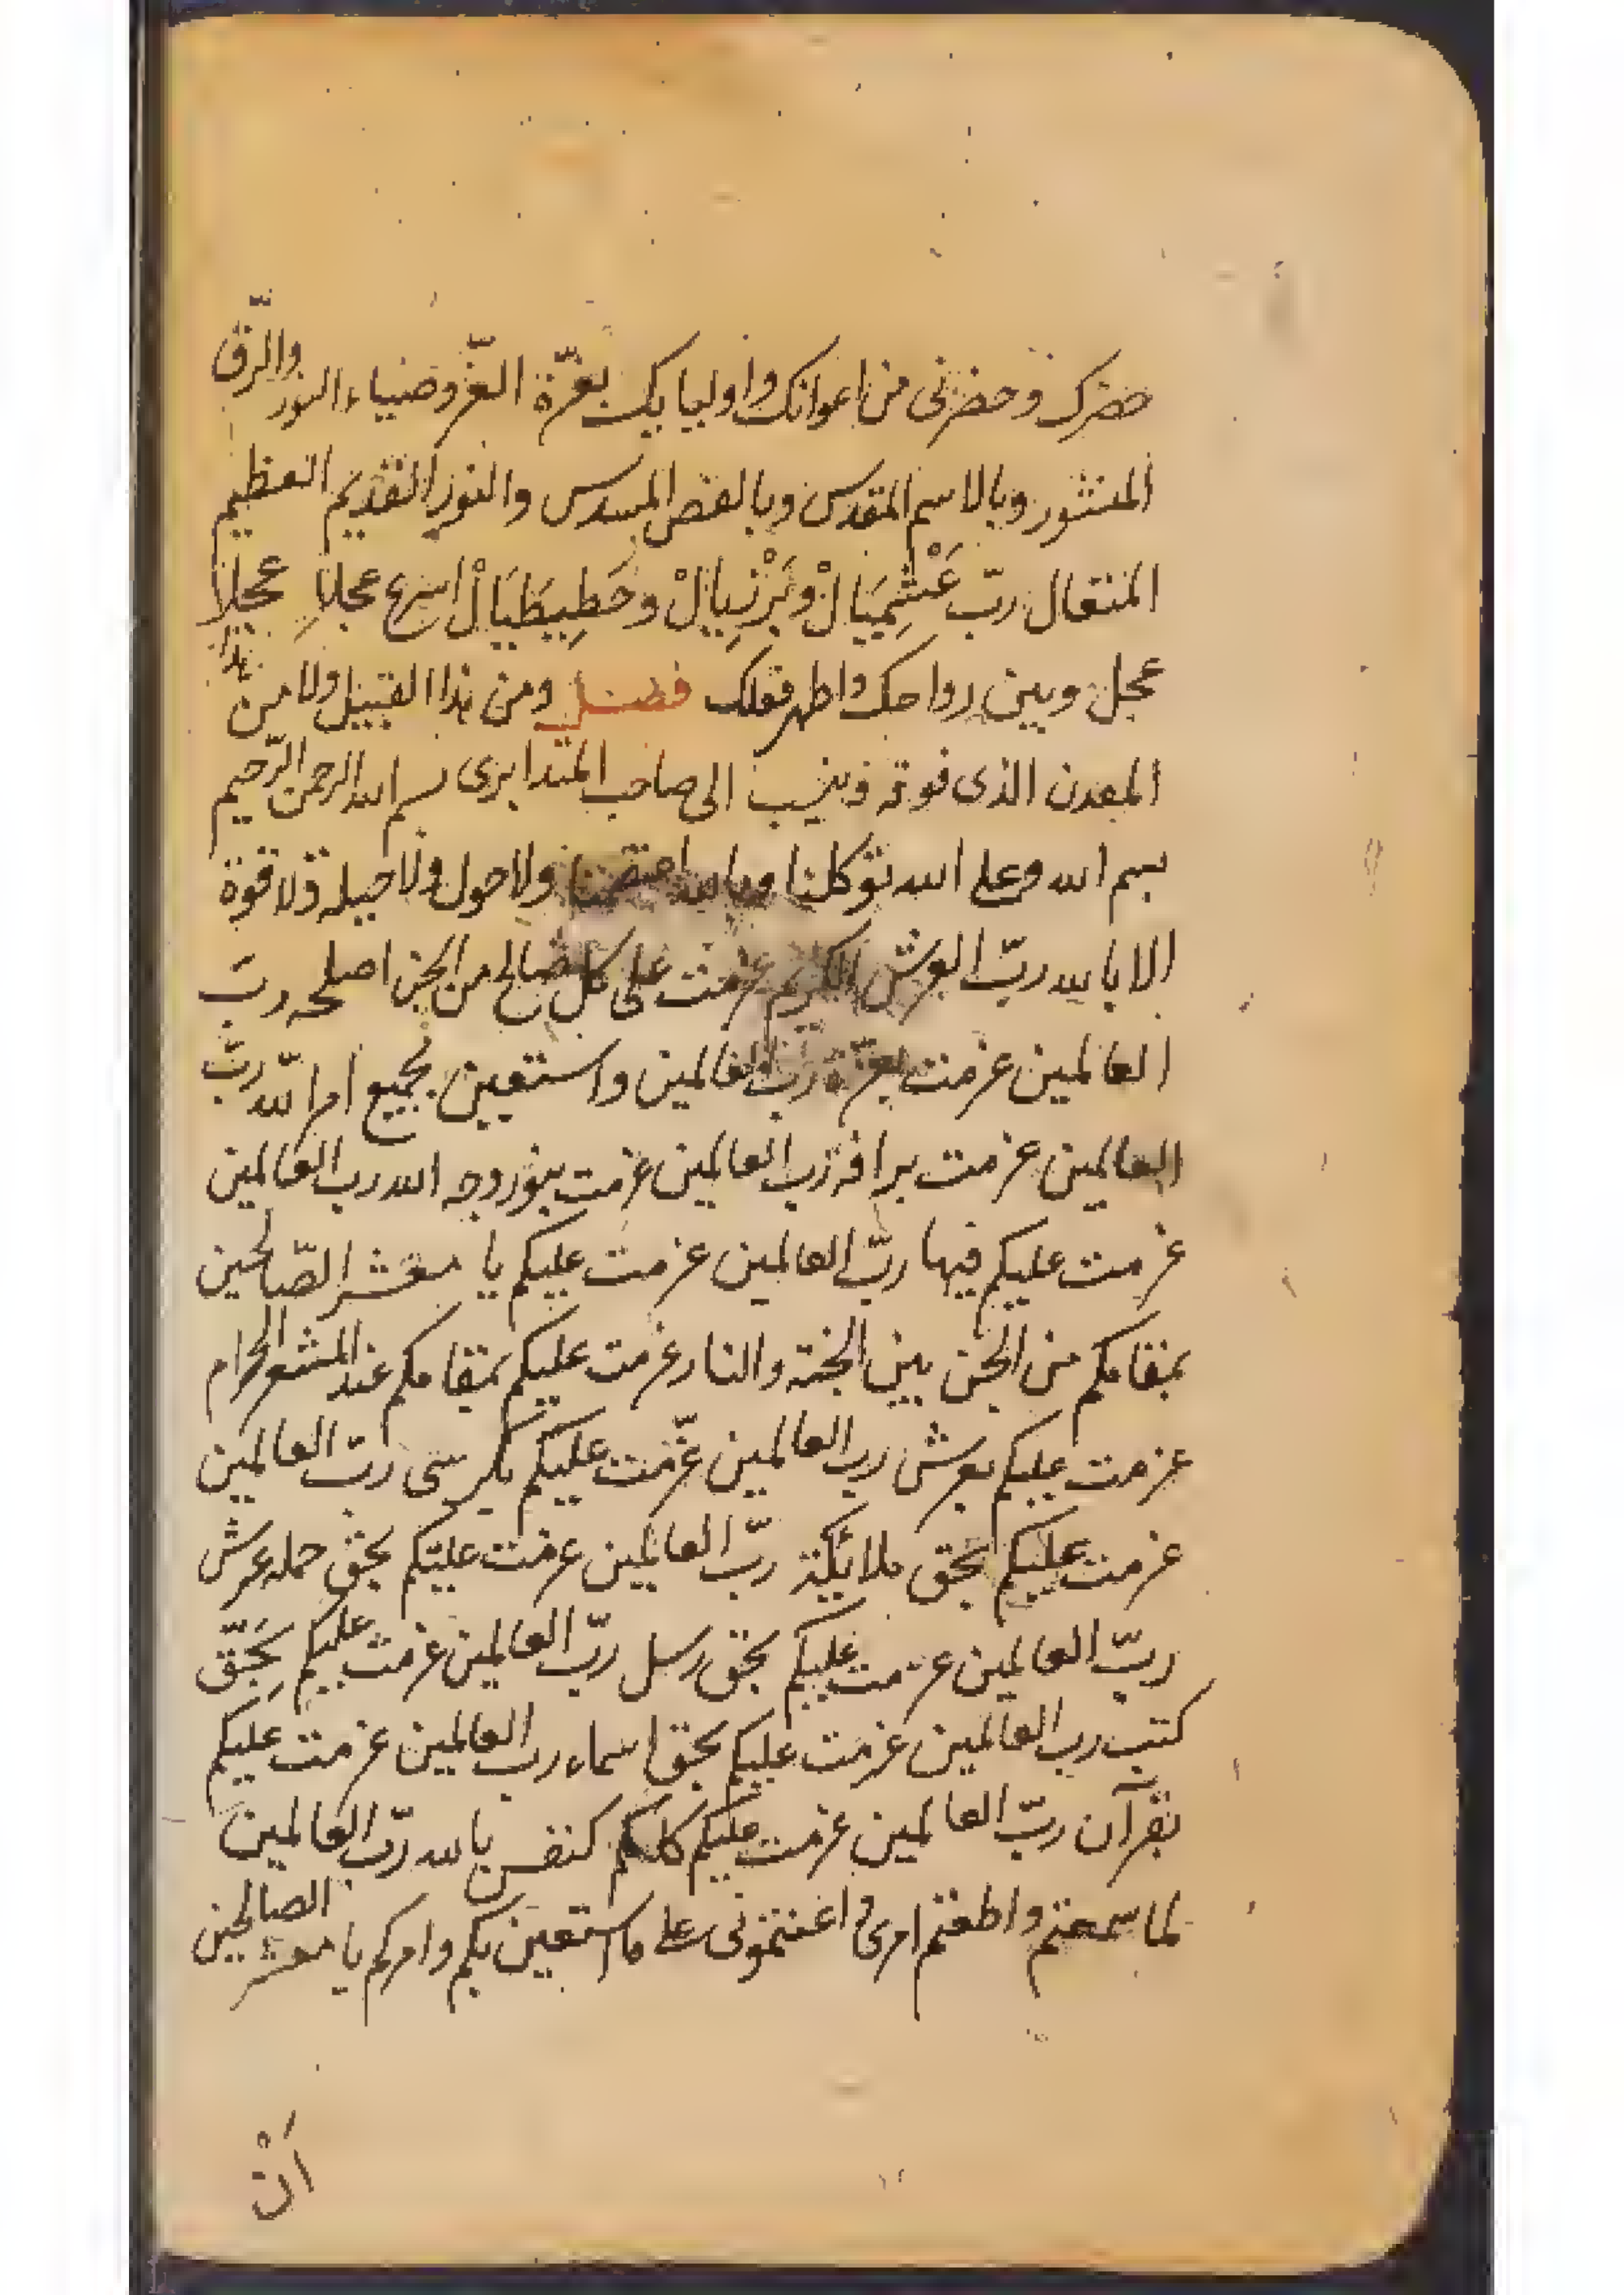 حضرك وحضرنى من اعوانك واوليايك بعزة العز وضياء النور والرق
المنشور وبالاسم المقدس وبالفص المسدس والنور القديم العظيم
المتعال ربّ عَنْثِمِيَالْ وبَرْنِيالْ وحَطِبِيطَيَالْ اسرع عجلاً عجلاً
عجل وبين رواحك واظهر فعلك فصل ومن هذا القبيل ولا من هذا
المعدن الذى فوقه وينسب الى صاحب المتدابرى بسم الله الرحمن الرّحيم
بسم الله وعلى الله توكلنا وبالله اعتصمنا ولا حول ولا حيلة ولا قوة
الا بالله ربّ العرش الكريم عزمت على كل صالح من الجن اصلحه ربّ
العالمين عزمت بعزّة ربّ العالمين واستعين بجميع امر الله ربّ
العالمين عزمت برافة رب العالمين عزمت بنور وجه الله رب العالمين
عزمت عليكم فيها ربّ العالمين عزمت عليكم يا معشر الصّالحين
بمقامكم من الجن بين الجنة والنار عزمت عليكم بمقامكم عند المشعر الحرام
عزمت عليكم بعرش رب العالمين عزّمت عليكم بكرسى ربّ العالمين
عزمت عليكم بحق ملائكة ربّ العالمين عزمت عليكم بحق حملة عرش
ربّ العالمين عزمت عليكم بحق رسل ربّ العالمين عزمت عليكم بِحَقّ
كتب رب العالمين عزمت عليكم بحق اسماء رب العالمين عزمت عليكم
بقرآن ربّ العالمين عزمت عليكم كلكم كنفس بالله ربّ العالمين
لما سمعتم واطعتم امرى واعنتمونى على ما استعين بكم وامركم يا معشر الصالحين
اَنْ